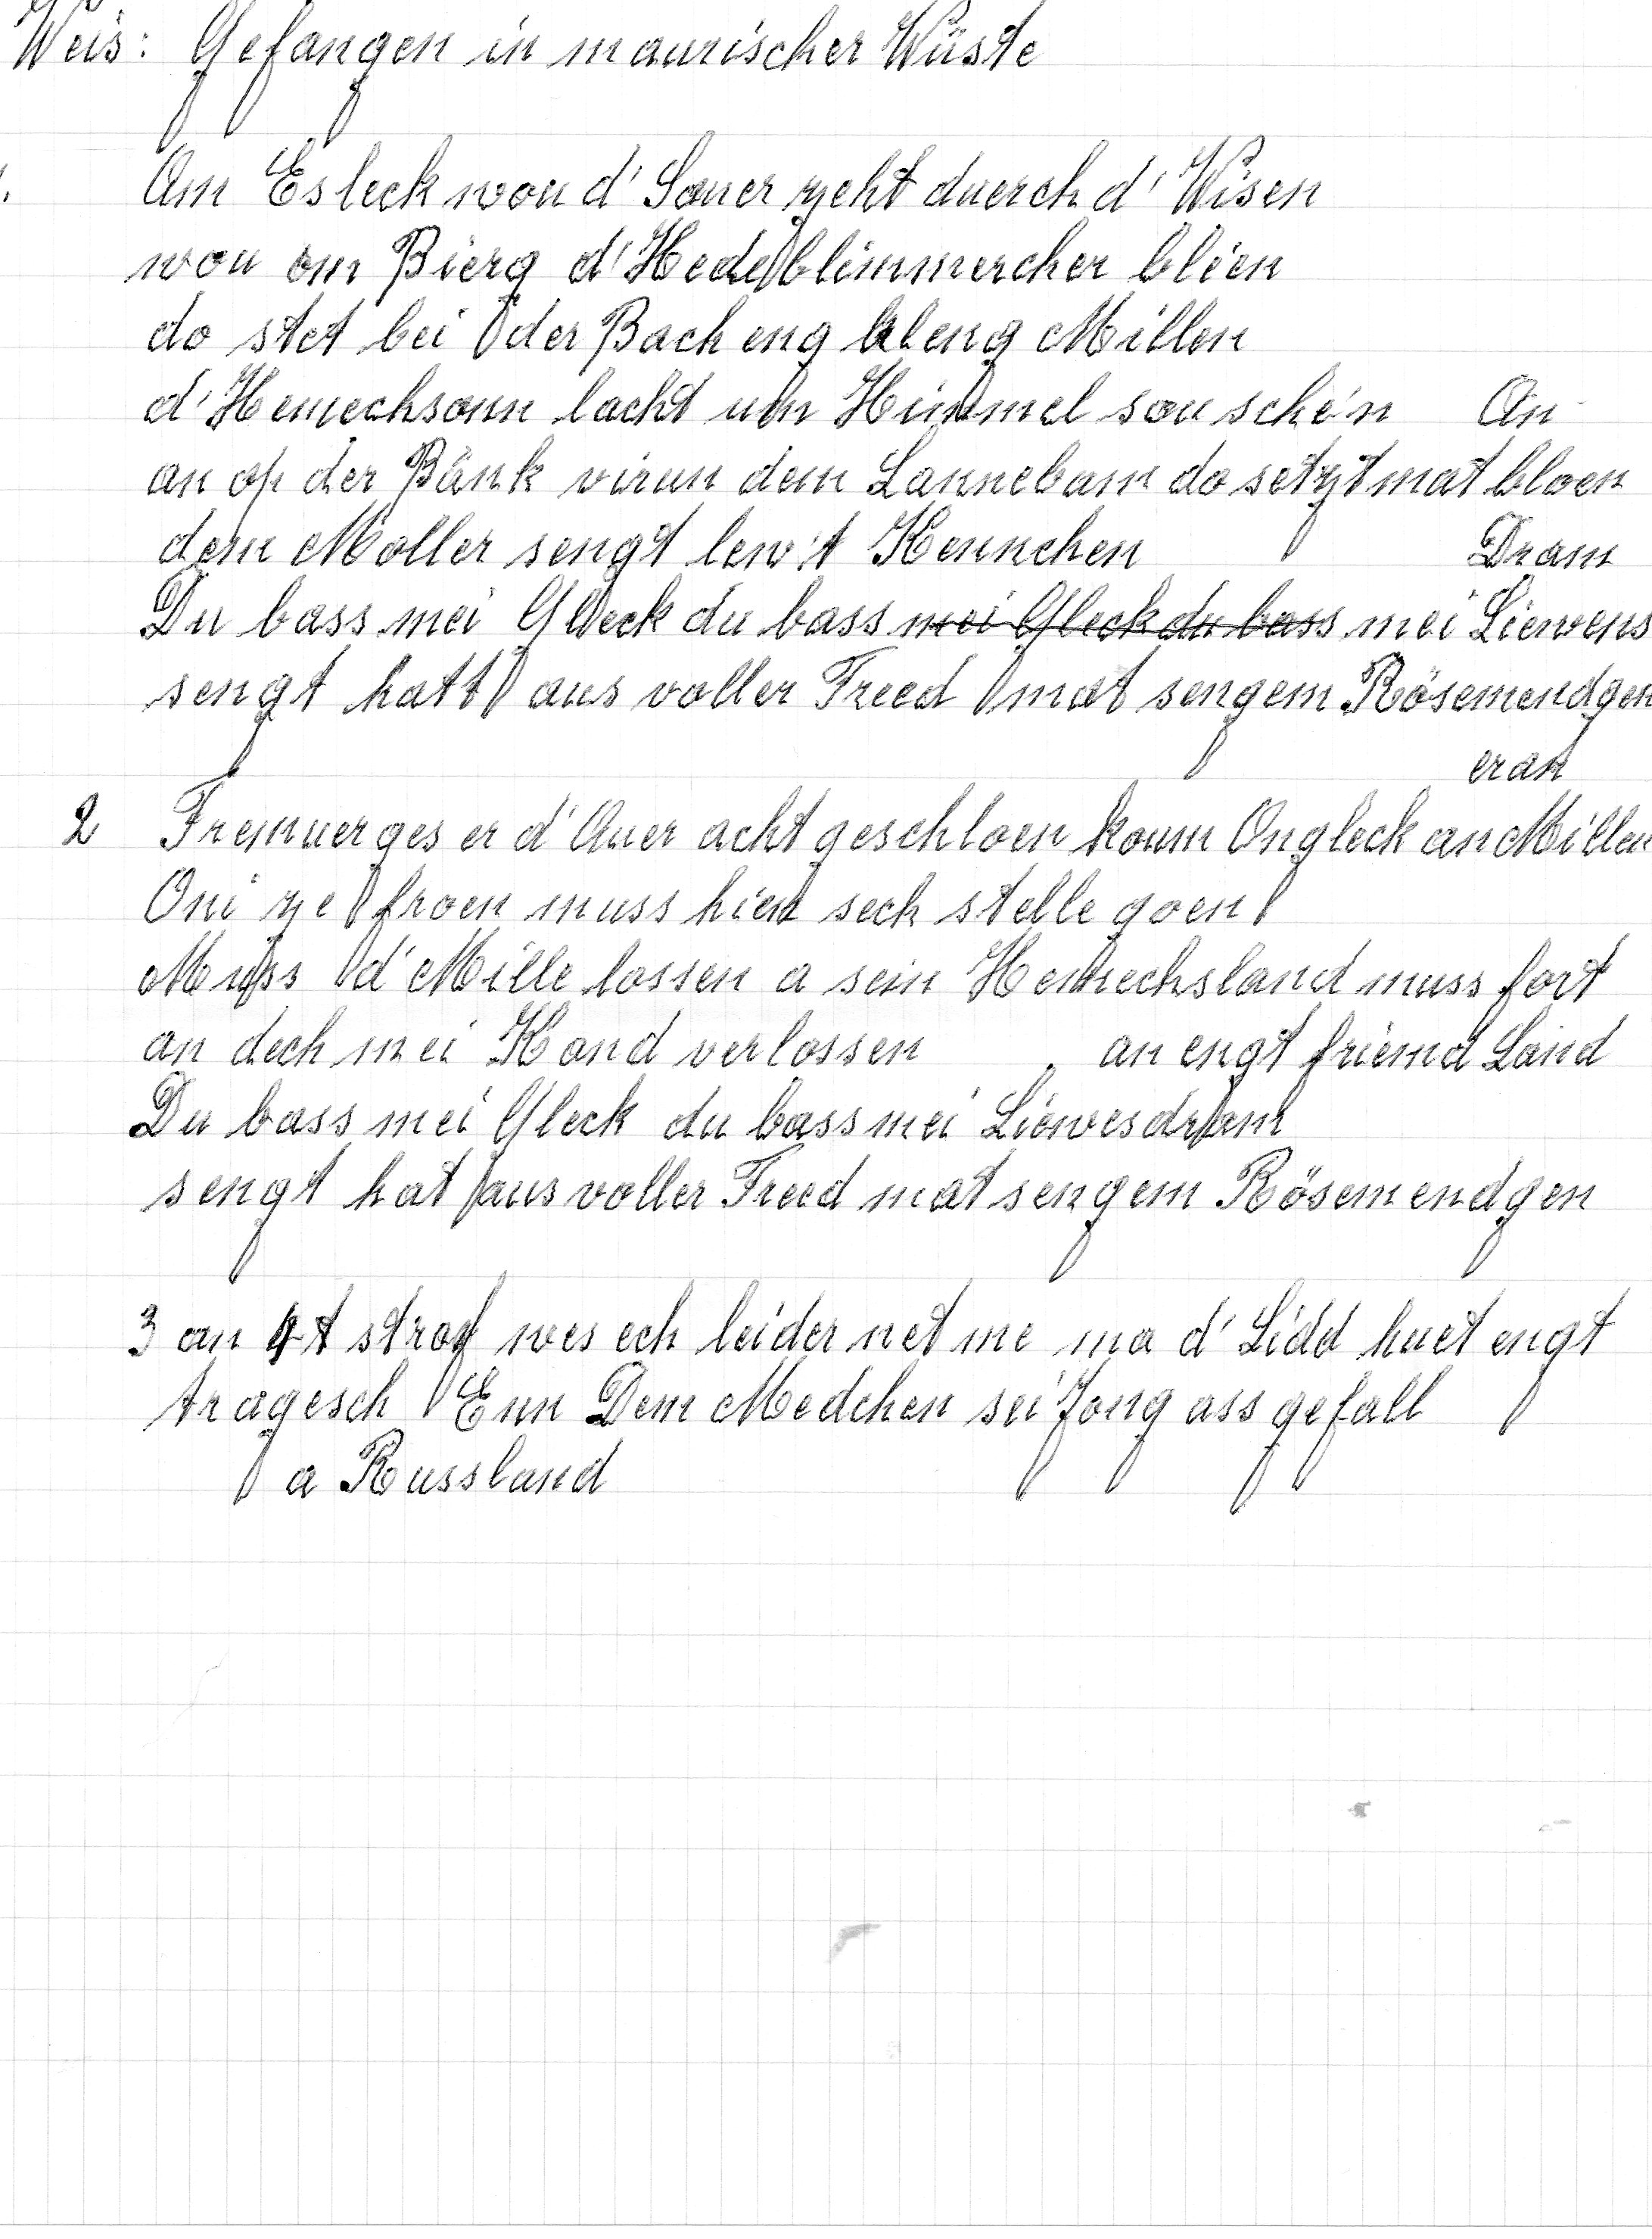 Weis: Gefangen in maurischer Wüste
1. Am Esleck wou d' Sauer zeht duerch d' Wisen
wou om Bierg d' Hedeblimmercher bléen
do stet bei der Bach eng kleng Millen
d' Hemechsonn lacht um Himmel sou schén An
an op der Bänk virun dem Lannebam do setzt mat bloen
dem Moller sengt lew't Kennchen Dram
Du bass mei Gleck du bass mei Gleck du bass mei Liewens
sengt hatt aus voller Freed mat sengem Rösemendgen
eran
2 Fremuerges er d' Auer acht geschloen koum Ongleck an Millen
Oni ze froen muss hien sech stelle goen
Muss d' Mille lossen a sein Hemechsland muss fort
an dech mei Kand verlossen an engt friemd Land
Du bass mei Gleck du bass mei Liewesdram
sengt hat aus voller Freed mat sengem Rösemendgen
3 an 4t strof wes ech leider net me ma d' Lidd huet engt
tragesch Enn Dem Medchen sei Jong ass gefall
a Russland